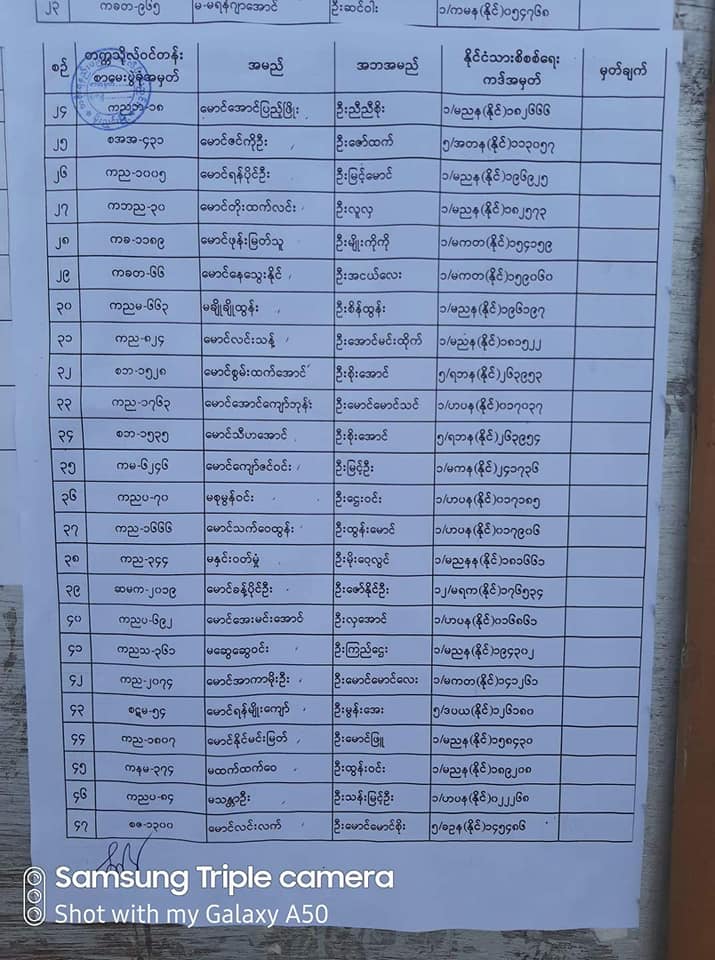 ၂၃ ကခတ-၉၆၅ မ-မရန်ဂျာအောင် ဦးဆင်ဝါး ၁/ကမန(နိုင်)၀၅၄၇၆၈
စဉ် တက္ကသိုလ်ဝင်တန်း စာမေးပွဲခုံအမှတ် အမည် အဘအမည် နိုင်ငံသားစိစစ်ရေး ကဒ်အမှတ် မှတ်ချက်
၂၄ ကညဘ-၁၈ မောင်အောင်ပြည့်ဖြိုး ဦးညီညီစိုး ၁/မညန(နိုင်)၁၈၂၆၆၆
၂၅ စအအ-၄၃၁ မောင်ဇင်ကိုဦး ဦးဇော်ထက် ၅/အတန(နိုင်)၁၁၃၀၅၇
၂၆ ကည-၁၀၀၅ မောင်ရန်ပိုင်ဦး ဦးမြင့်မောင် ၁/မညန(နိုင်)၁၉၆၉၂၅
၂၇ ကဘည-၃၀ မောင်တိုးထက်လင်း ဦးလူလှ ၁/မညန(နိုင်)၁၈၂၅၇၃
၂၈ ကခ-၁၁၈၉ မောင်ဖုန်းမြတ်သူ ဦးမျိုးကိုကို ၁/မကတ(နိုင်)၁၅၄၁၅၉
၂၉ ကခတ-၆၆ မောင်နေသွေးနိုင် ဦးအငယ်လေး ၁/မကတ(နိုင်)၁၅၉၀၆၀
၃၀ ကညမ-၆၆၃ မချိုချိုထွန်း ဦးစိန်ထွန်း ၁/မညန(နိုင်)၁၉၆၁၉၇
၃၁ ကည-၈၂၄ မောင်လင်းသန့် ဦးအောင်မင်းထိုက် ၁/မညန(နိုင်)၁၈၁၅၂၂
၃၂ စဘ-၁၅၂၈ မောင်စွမ်းထက်အောင် ဦးစိုးအောင် ၅/ရဘန(နိုင်)၂၆၃၉၅၃
၃၃ ကည-၁၇၆၃ မောင်အောင်ကျော်ဘုန်း ဦးမောင်မောင်သင် ၁/ဟပန(နိုင်)၀၁၇၀၃၇
၃၄ စဘ-၁၅၃၅ မောင်သီဟအောင် ဦးစိုးအောင် ၅/ရဘန(နိုင်)၂၆၃၉၅၄
၃၅ ကမ-၆၂၄၆ မောင်ကျော်ဇင်ဝင်း ဦးမြင့်ဦး ၁/မကန(နိုင်)၂၄၁၇၃၆
၃၆ ကညပ-၇၀ မစုမွန်ဝင်း ဦးဌေးဝင်း ၁/ဟပန(နိုင်)၀၁၇၁၈၅
၃၇ ကည-၁၆၆၆ မောင်သက်ဝေထွန်း ဦးထွန်းမောင် ၁/ဟပန(နိုင်)၀၁၇၉၀၆
၃၈ ကည-၃၄၄ မနှင်းဝတ်မှုံ ဦးမိုးဝေ့လွင် ၁/မညနန(နိုင်)၁၈၁၆၆၁
၃၉ ဆမက-၂၀၁၉ မောင်ခန့်ပိုင်ဦး ဦးဇော်နိုင်ဦး ၁၂/မရက(နိုင်)၁၇၆၅၃၄
၄၀ ကညပ-၆၉၂ မောင်အေးမင်းအောင် ဦးလှအောင် ၁/ဟပန(နိုင်)၀၁၆၈၆၁
၄၁ ကညသ-၃၆၁ မဆွေဆွေဝင်း ဦးကြည်ဌေး ၁/မညန(နိုင်)၁၉၄၃၀၂
၄၂ ကည-၂၀၇၄ မောင်အာကာမိုးဦး ဦးမောင်မောင်လေး ၁/မကတ(နိုင်)၁၄၁၂၆၁
၄၃ စဋ္ဌမ-၅၄ မောင်ရန်မျိုးကျော် ဦးမွန်းအေး ၅/ဒပယ(နိုင်)၁၂၆၁၈၀
၄၄ ကည-၁၈၀၇ မောင်နိုင်မင်းမြတ် ဦးမောင်ဖြူ ၁/မညန(နိုင်)၁၅၈၄၃၀
၄၅ ကနမ-၃၇၄ မထက်ထက်ဝေ ဦးထွန်းဝင်း ၁/မညန(နိုင်)၁၈၉၂၀၈
၄၆ ကညပ-၈၄ မသန္တာဦး ဦးသန်းမြင့်ဦး ၁/ဟပန(နိုင်)၀၂၂၂၆၈
၄၇ စဇ-၁၃၀၀ မောင်လင်းလက် ဦးမောင်မောင်စိုး ၅/ခဥန(နိုင်)၁၄၅၄၈၆
Samsung Triple camera
Shot with my Galaxy A50